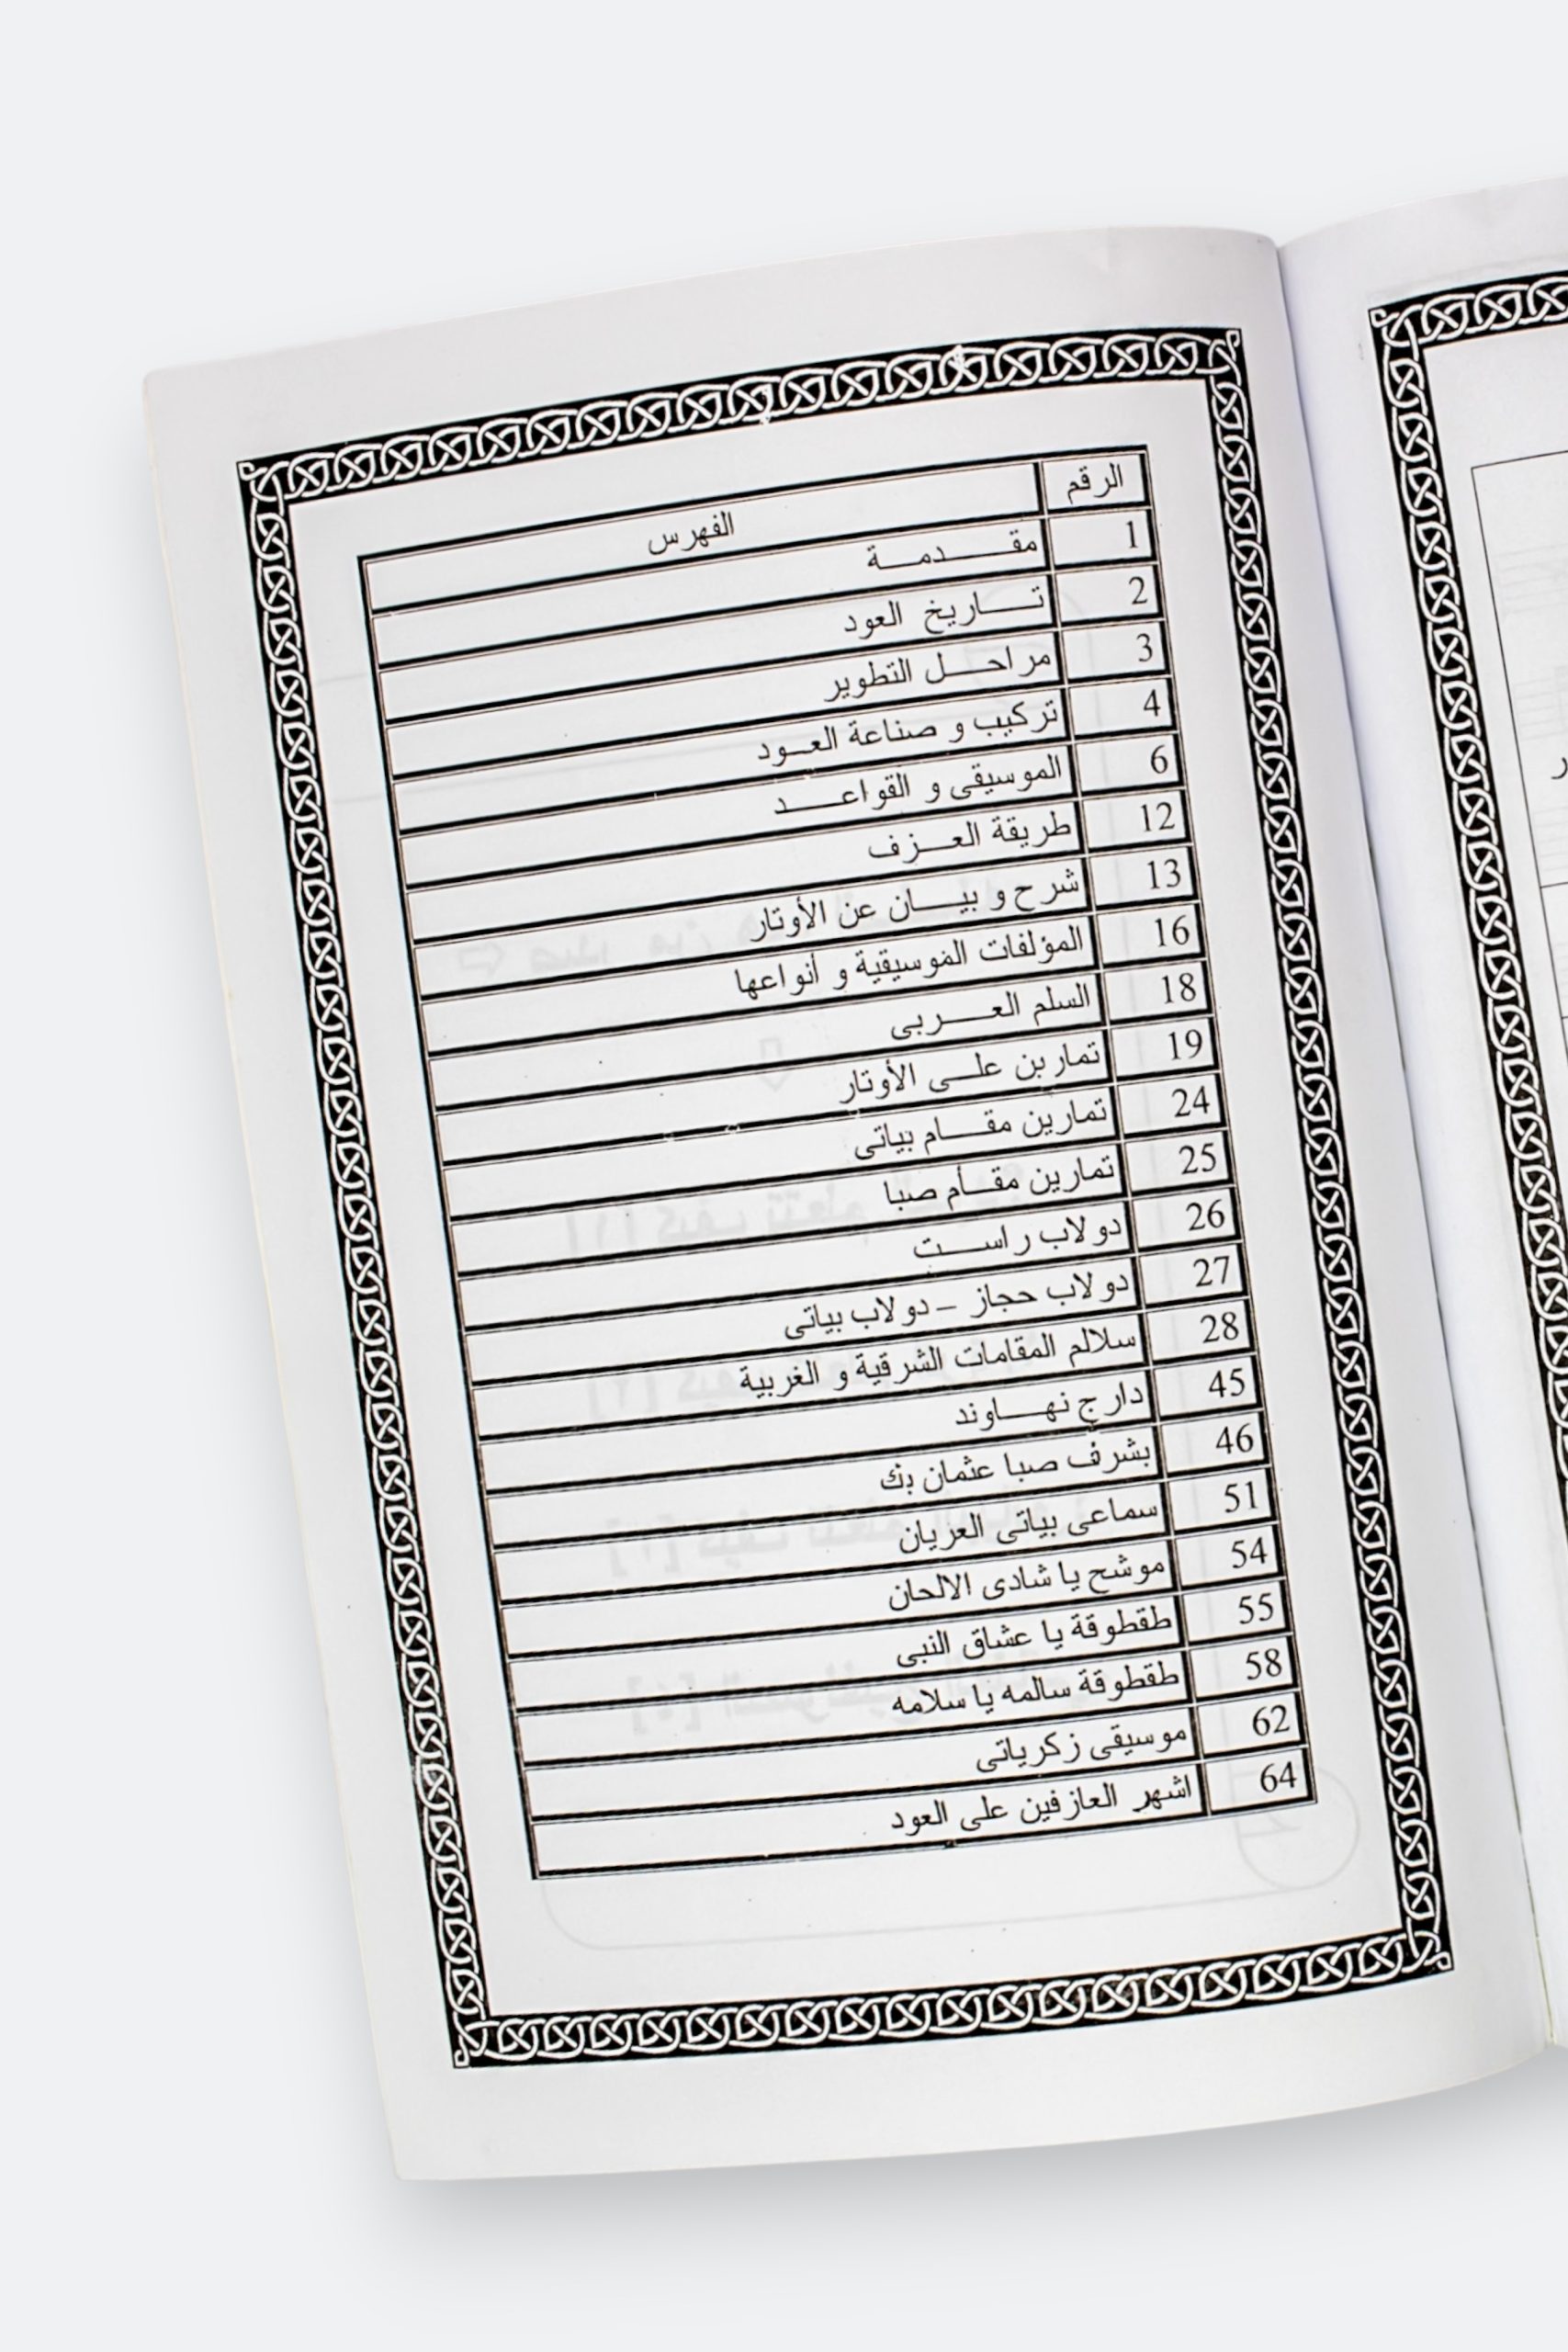 الرقم الفهرس
1 مقدمة
2 تاريخ العود
3 مراحل التطوير
4 تركيب و صناعة العود
6 الموسيقى و القواعد
12 طريقة العزف
13 شرح و بيان عن الأوتار
16 المؤلفات الموسيقية و أنواعها
18 السلم العربى
19 تمارين على الأوتار
24 تمارين مقام بياتى
25 تمارين مقام صبا
26 دولاب راست
27 دولاب حجاز – دولاب بياتى
28 سلالم المقامات الشرقية و الغربية
45 دارج نهاوند
46 بشرف صبا عثمان بك
51 سماعى بياتى العريان
54 موشح يا شادى الالحان
55 طقطوقة يا عشاق النبى
58 طقطوقة سالمه يا سلامه
62 موسيقى زكرياتى
64 اشهر العازفين على العود